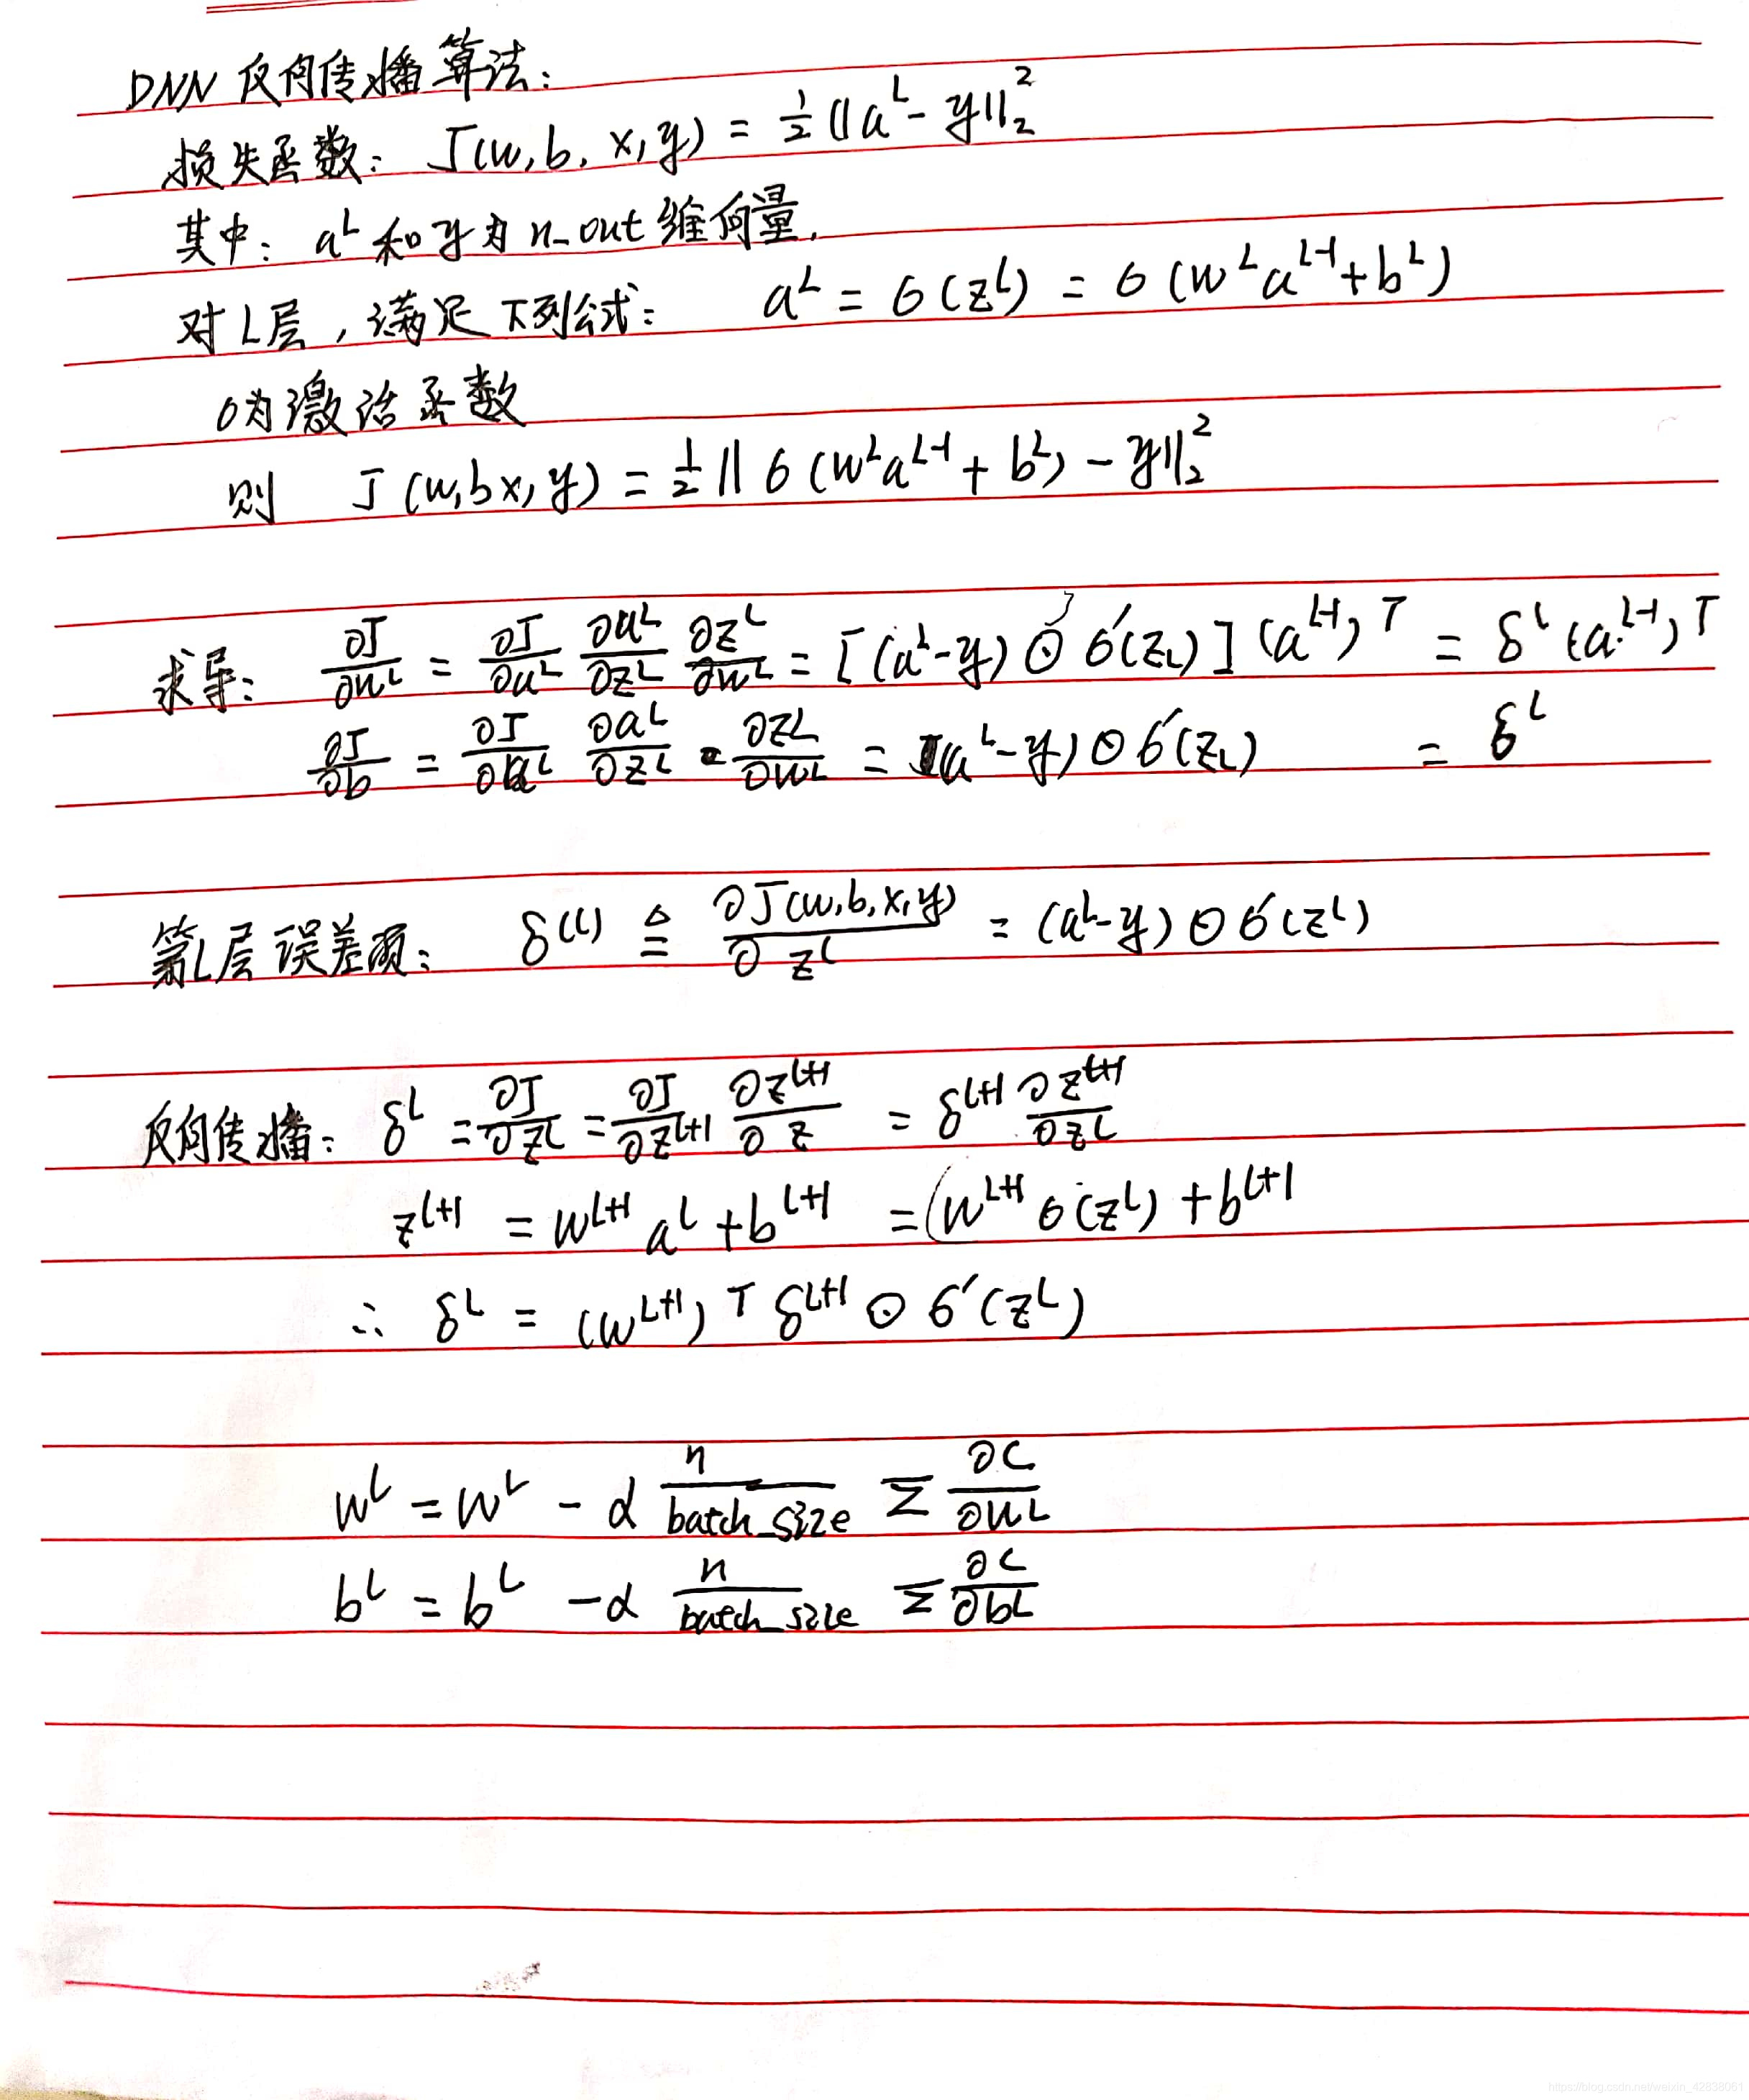 DNN 反向传播算法:
损失函数: J(w,b, x,y) = 1/2 ||a^L - y||_2^2
其中: a^L 和 y 为 n_out 维向量.
对 L层, 满足下列公式: a^L = σ(z^L) = σ(w^L a^{L-1} + b^L)
σ为激活函数
则 J(w,b x,y) = 1/2 || σ(w^L a^{L-1} + b^L) - y||_2^2
求导: ∂J/∂w^L = ∂J/∂a^L ∂a^L/∂z^L ∂z^L/∂w^L = [(a^L-y) ⊙ σ'(z_L)] (a^{L-1})^T = δ^L (a^{L-1})^T
∂J/∂b = ∂J/∂a^L ∂a^L/∂z^L · ∂z^L/∂w^L = (a^L-y) ⊙ σ'(z_L) = δ^L
第L层误差项: δ^(L) ≜ ∂J(w,b,x,y)/∂z^L = (a^L-y) ⊙ σ'(z^L)
反向传播: δ^L = ∂J/∂z^L = ∂J/∂z^{L+1} ∂z^{L+1}/∂z = δ^{L+1} ∂z^{L+1}/∂z^L
z^{L+1} = w^{L+1} a^L + b^{L+1} = (w^{L+1} σ(z^L) + b^{L+1}
∴ δ^L = (w^{L+1})^T δ^{L+1} ⊙ σ'(z^L)
w^L = w^L - α n/batch_size Σ ∂C/∂w^L
b^L = b^L - α n/batch_size Σ ∂C/∂b^L
https://blog.csdn.net/weixin_42838061